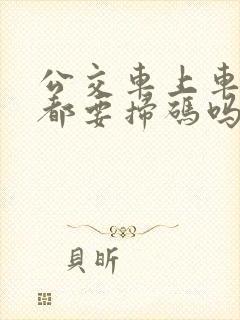 公交車上車
都要掃碼嗎
貝昕